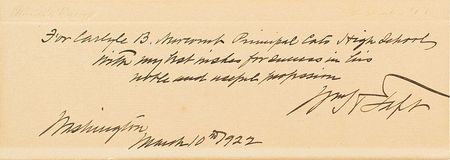 For Carlyle B. Newcomb Principal Cato High School,
with my best wishes for success in his
noble and useful profession
Wm H Taft
Washington,
March 10th 1922